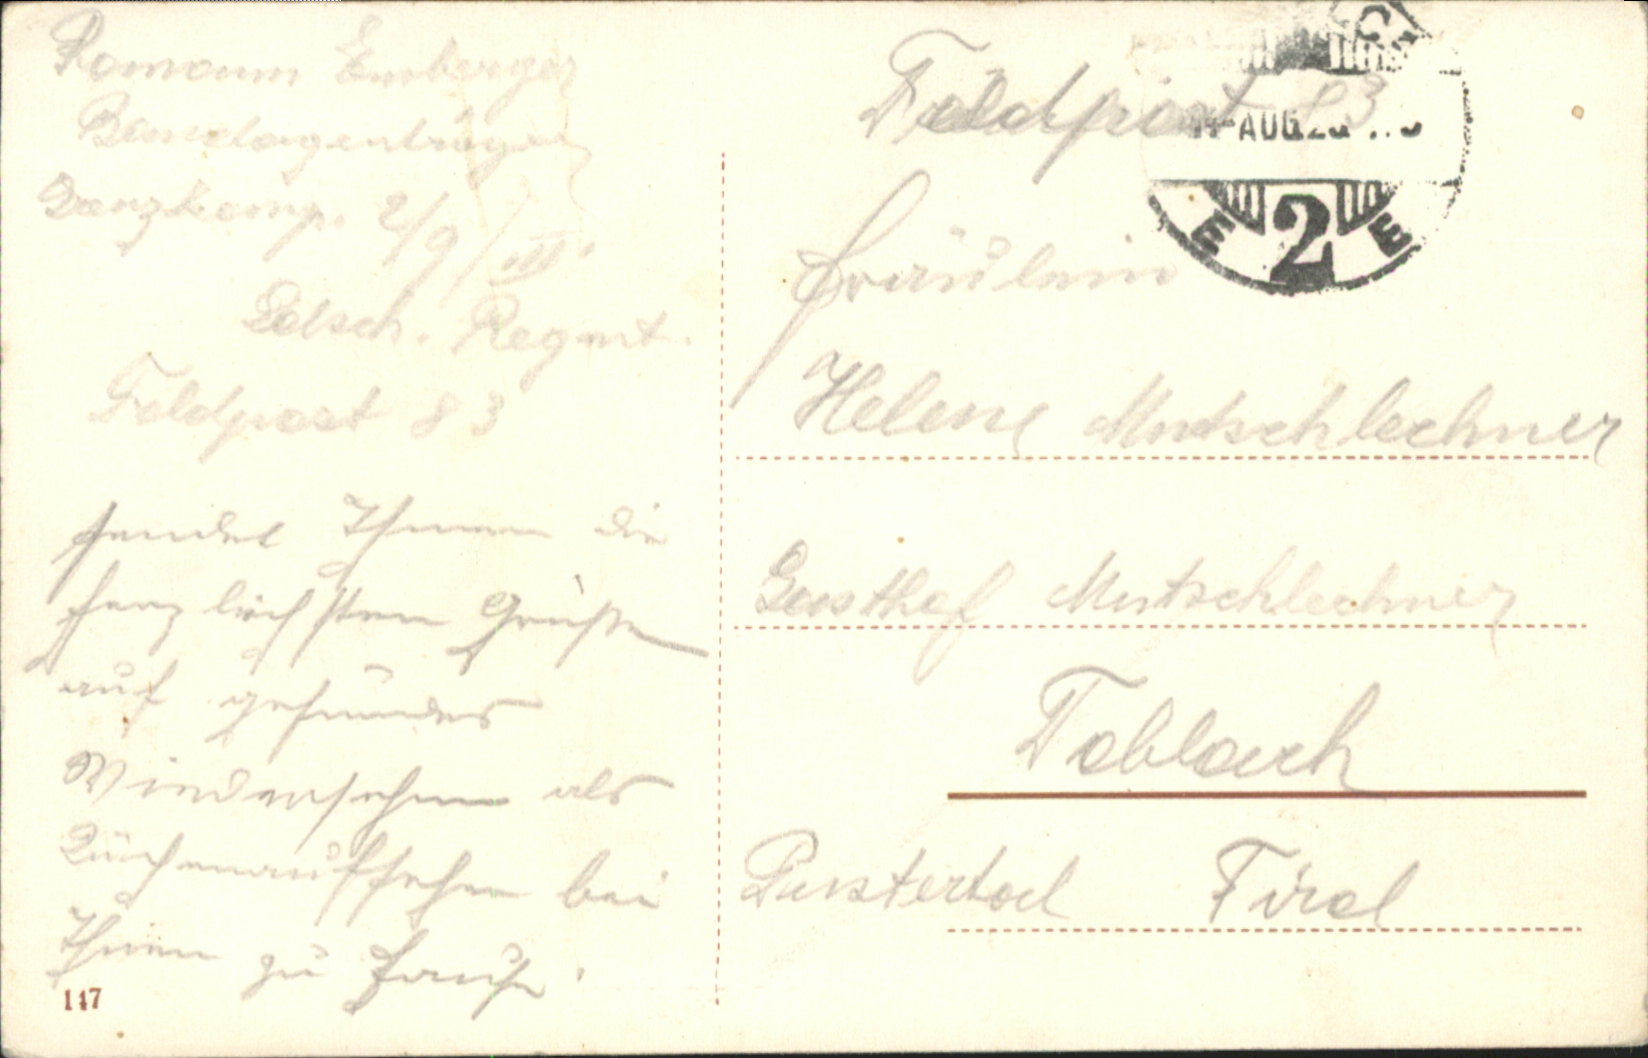 Romann Emberger
Bandagenträger
Ganzkomp. 2/9/III.
Ldsch. Regmt.
Feldpost 83
sendet Ihnen die
herzlichsten Grüße
auf gesundes
Wiedersehen als
bei
Ihnen zu Hause.
147
Feldpost 83
AUG
E 2 E
Fräulein
Helene Mutschlechner
Gasthof Mutschlechner
Toblach
Pustertal Tirol